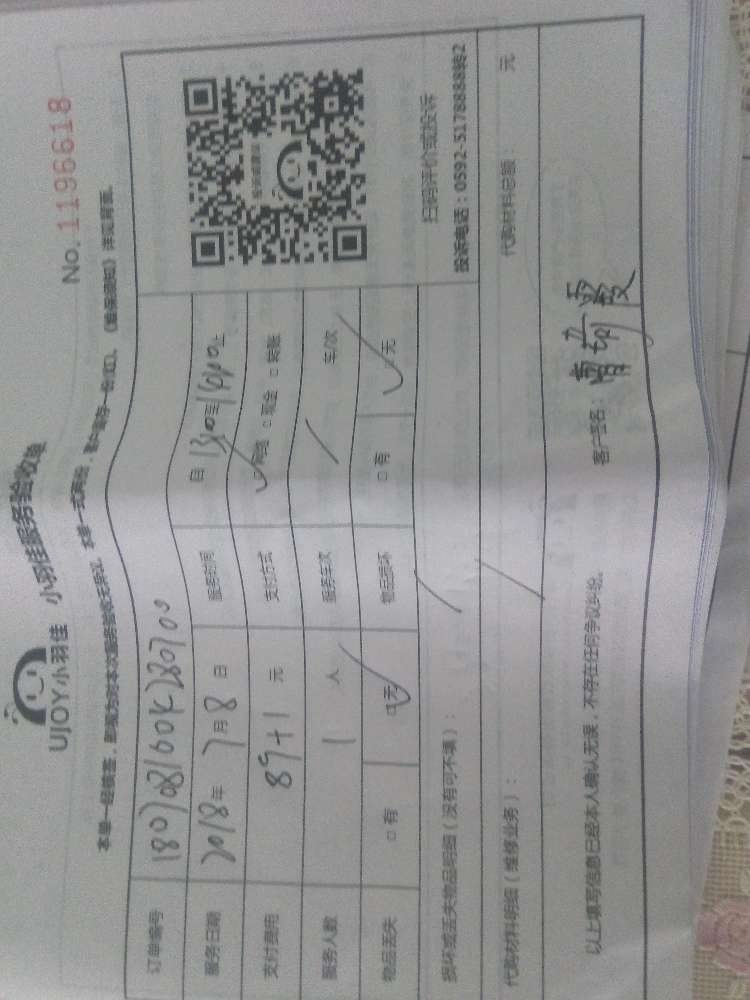 UJOY小羽佳 小羽佳服务验收单
No. 1196618
本单一经核签，即视为对本次服务验收无异议，本单一式两份，客户留存一份(红)。《维保须知》详见背面。
订单编号
服务日期 2018年 7月8日 服务时间 自 13:00至 止
支付费用 89+1 元 支付方式 □现金 □转账
服务人数 1 人 服务车次 / 车/次
物品丢失 □有 ☑无 物品损坏 □有 ☑无
扫码评价或投诉
投诉电话：0592-5178888转2
损坏或丢失物品明细（没有可不填）： /
代购材料明细（维修业务）： / 代购材料总额： 元
以上填写信息已经本人确认无误，不存在任何争议纠纷。 客户签名：